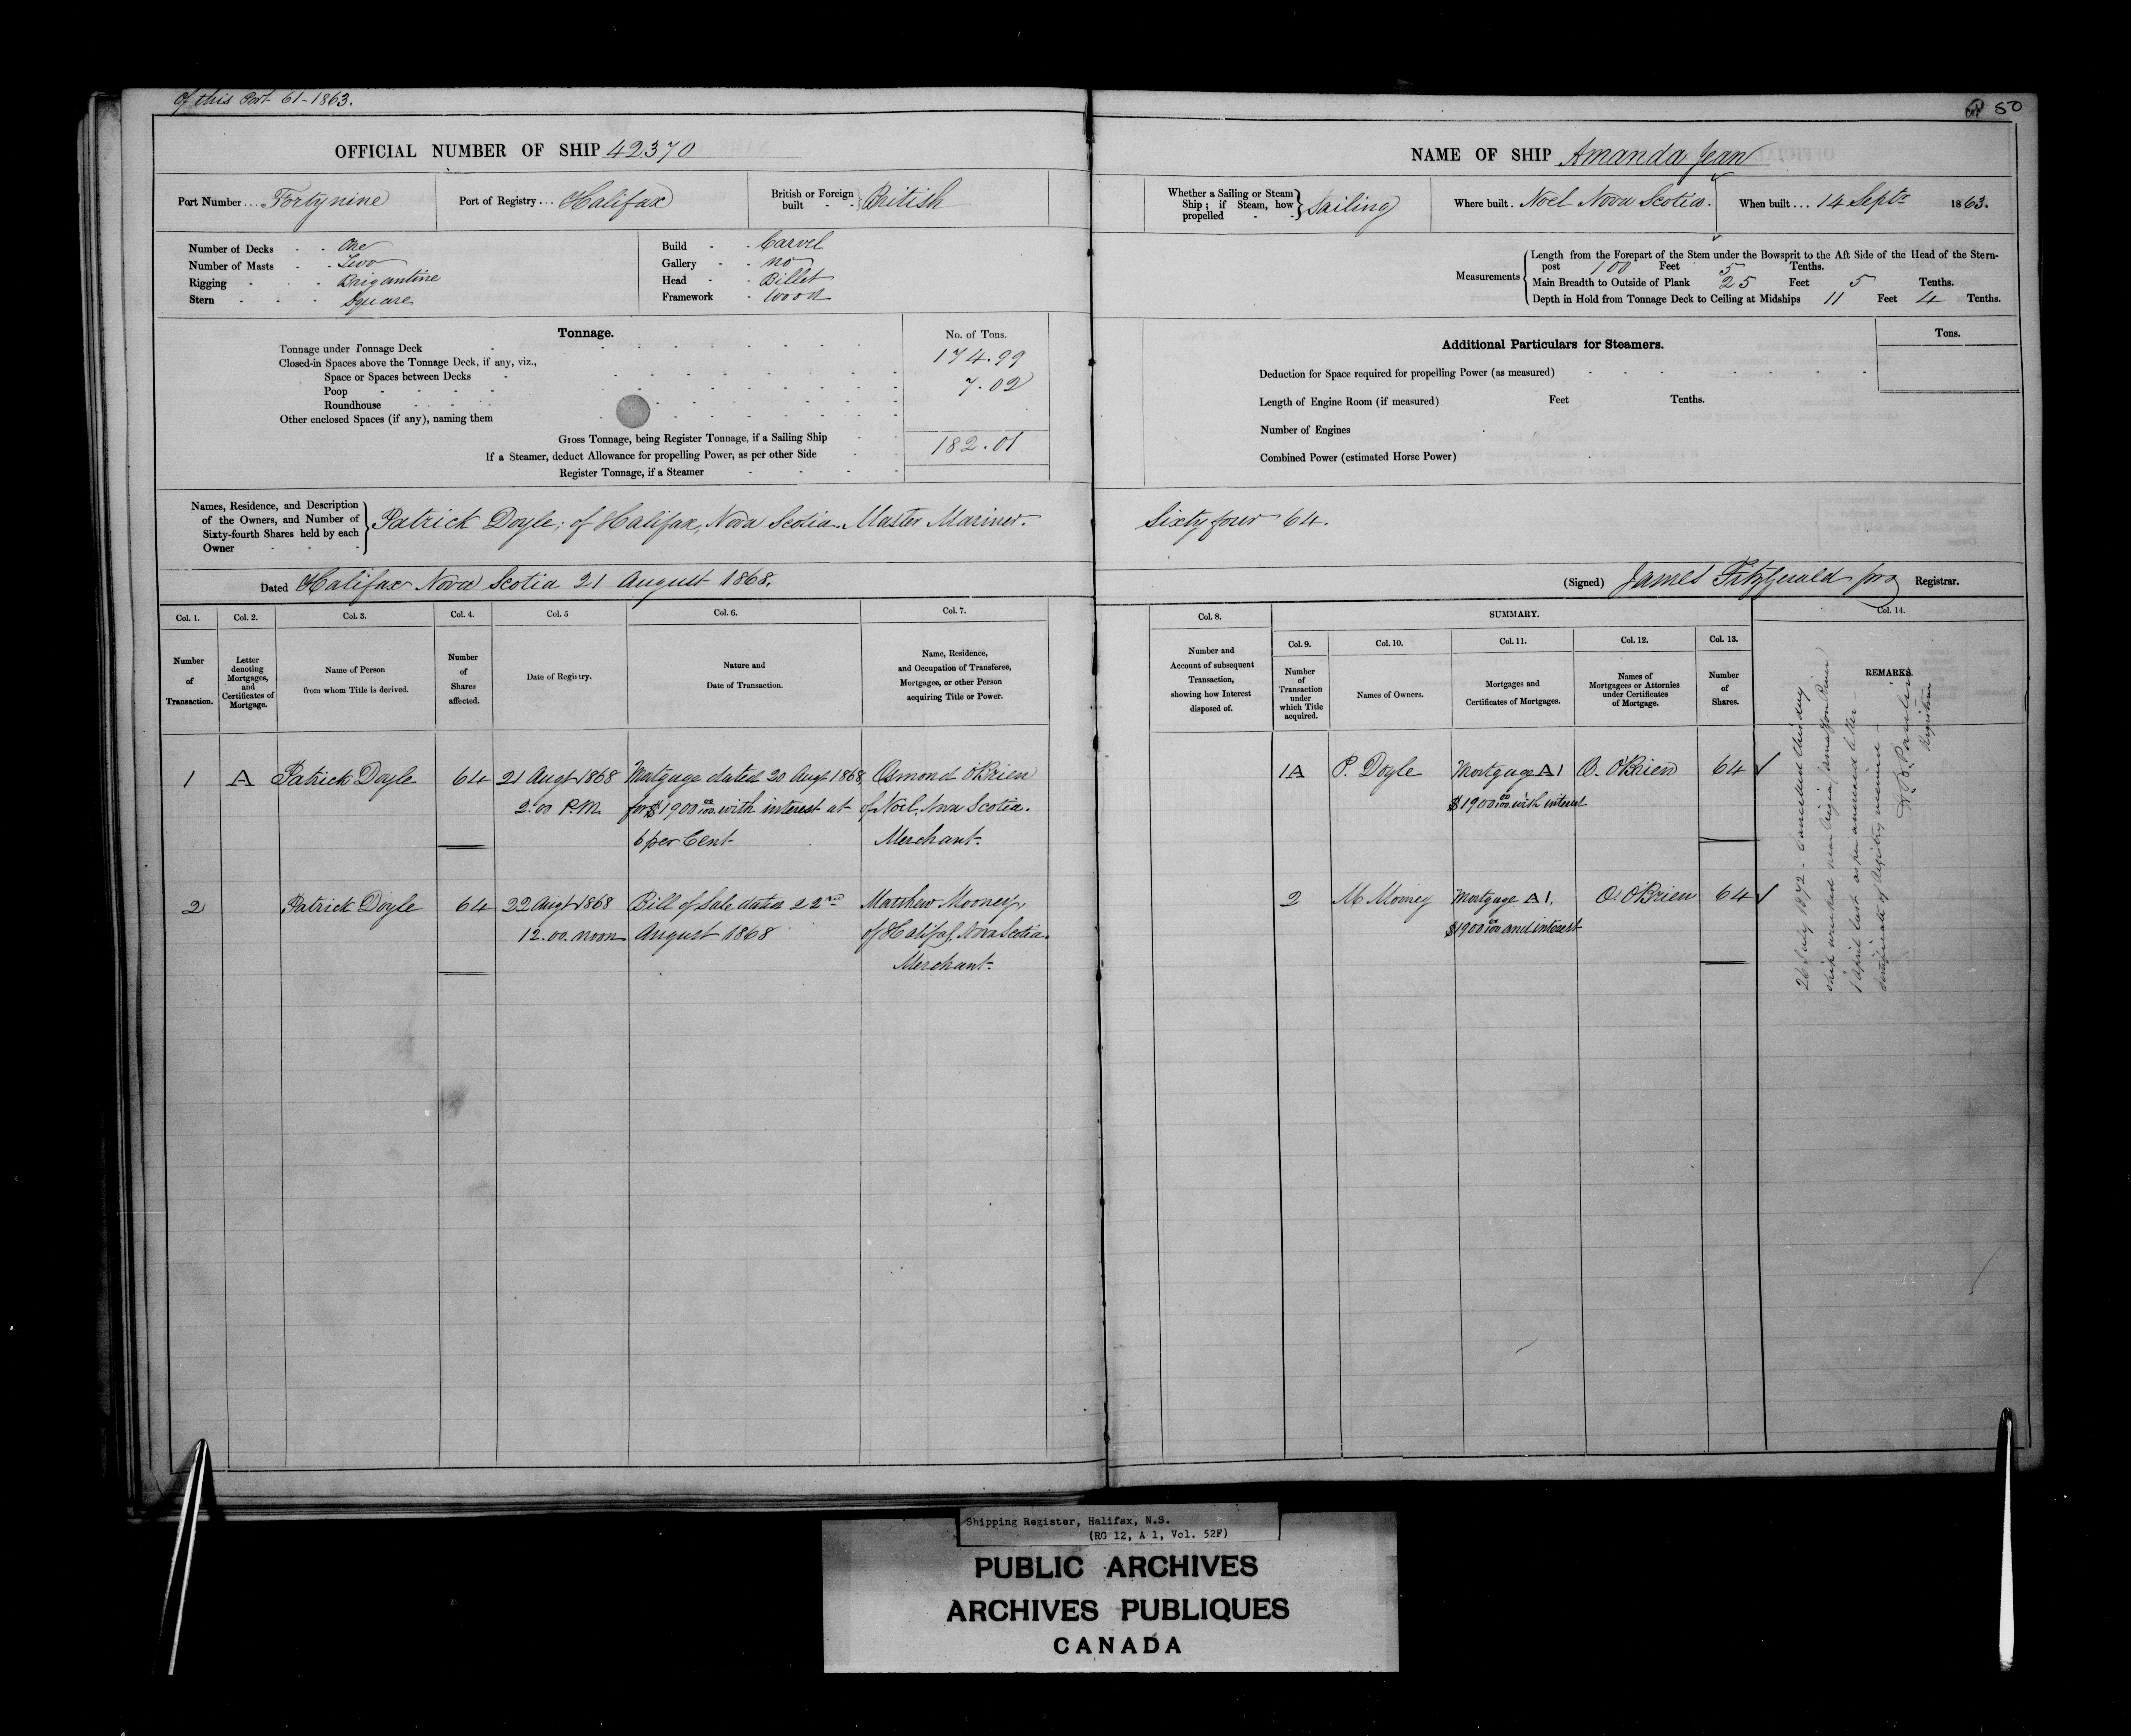 of this Port 61-1863.
50
OFFICIAL NUMBER OF SHIP 42370
Port Number... Forty nine
Port of Registry... Halifax
British or Foreign built - - British
Number of Decks - - One
Number of Masts - - Two
Rigging - - - Brigantine
Stern - - - Square
Build - - Carvel
Gallery - - no
Head - - Billet
Framework - Wood
Tonnage.
No. of Tons.
Tonnage under Tonnage Deck - 174.99
Closed-in Spaces above the Tonnage Deck, if any, viz.,
Space or Spaces between Decks - 7.02
Poop
Roundhouse
Other enclosed Spaces (if any), naming them
Gross Tonnage, being Register Tonnage, if a Sailing Ship 182.01
If a Steamer, deduct Allowance for propelling Power, as per other Side
Register Tonnage, if a Steamer
Names, Residence, and Description of the Owners, and Number of Sixty-fourth Shares held by each Owner
Patrick Doyle, of Halifax, Nova Scotia. Master Mariner.
Dated Halifax Nova Scotia 21 August 1868.
NAME OF SHIP Amanda Jean
Whether a Sailing or Steam Ship; if Steam, how propelled - - Sailing
Where built. Noel Nova Scotia.
When built... 14 Septr 1863.
Measurements
Length from the Forepart of the Stem under the Bowsprit to the Aft Side of the Head of the Stern-
post 100 Feet 5 Tenths.
Main Breadth to Outside of Plank 25 Feet 5 Tenths.
Depth in Hold from Tonnage Deck to Ceiling at Midships 11 Feet 4 Tenths.
Additional Particulars for Steamers.
Tons.
Deduction for Space required for propelling Power (as measured)
Length of Engine Room (if measured) Feet Tenths.
Number of Engines
Combined Power (estimated Horse Power)
Sixty four 64.
(Signed) James Fitzgerald pro Registrar.
Col. 1. Col. 2. Col. 3. Col. 4. Col. 5 Col. 6. Col. 7.
Number of Transaction.
Letter denoting Mortgages, and Certificates of Mortgage.
Name of Person from whom Title is derived.
Number of Shares affected.
Date of Registry.
Nature and Date of Transaction.
Name, Residence, and Occupation of Transferee, Mortgagee, or other Person acquiring Title or Power.
1 A Patrick Doyle 64 21 Augt 1868 Mortgage dated 20 Augt 1868, Osmond O'Brien
2.00 P.M. for $1900 00/100 with interest at of Noel, Nova Scotia.
6 per Cent Merchant.
2 Patrick Doyle 64 22 Augt 1868 Bill of Sale dated 22nd Matthew Mooney,
12.00 noon August 1868 of Halifax, Nova Scotia.
Merchant.
Col. 8. SUMMARY. Col. 14.
Col. 9. Col. 10. Col. 11. Col. 12. Col. 13.
Number and Account of subsequent Transaction, showing how Interest disposed of.
Number of Transaction under which Title acquired.
Names of Owners.
Mortgages and Certificates of Mortgages.
Names of Mortgagees or Attornies under Certificates of Mortgage.
Number of Shares.
REMARKS.
1A P. Doyle Mortgage A1 O. O'Brien 64
$1900 00/100 with interest
2 M Mooney Mortgage A1, O. O'Brien 64
$1900 00/100 and interest
26 July 1872 - Cancelled this day
ship wrecked near
1 April last as per annexed letter -
Certificate of Registry
Registrar
Shipping Register, Halifax, N.S.
(RG 12, A 1, Vol. 52F)
PUBLIC ARCHIVES
ARCHIVES PUBLIQUES
CANADA